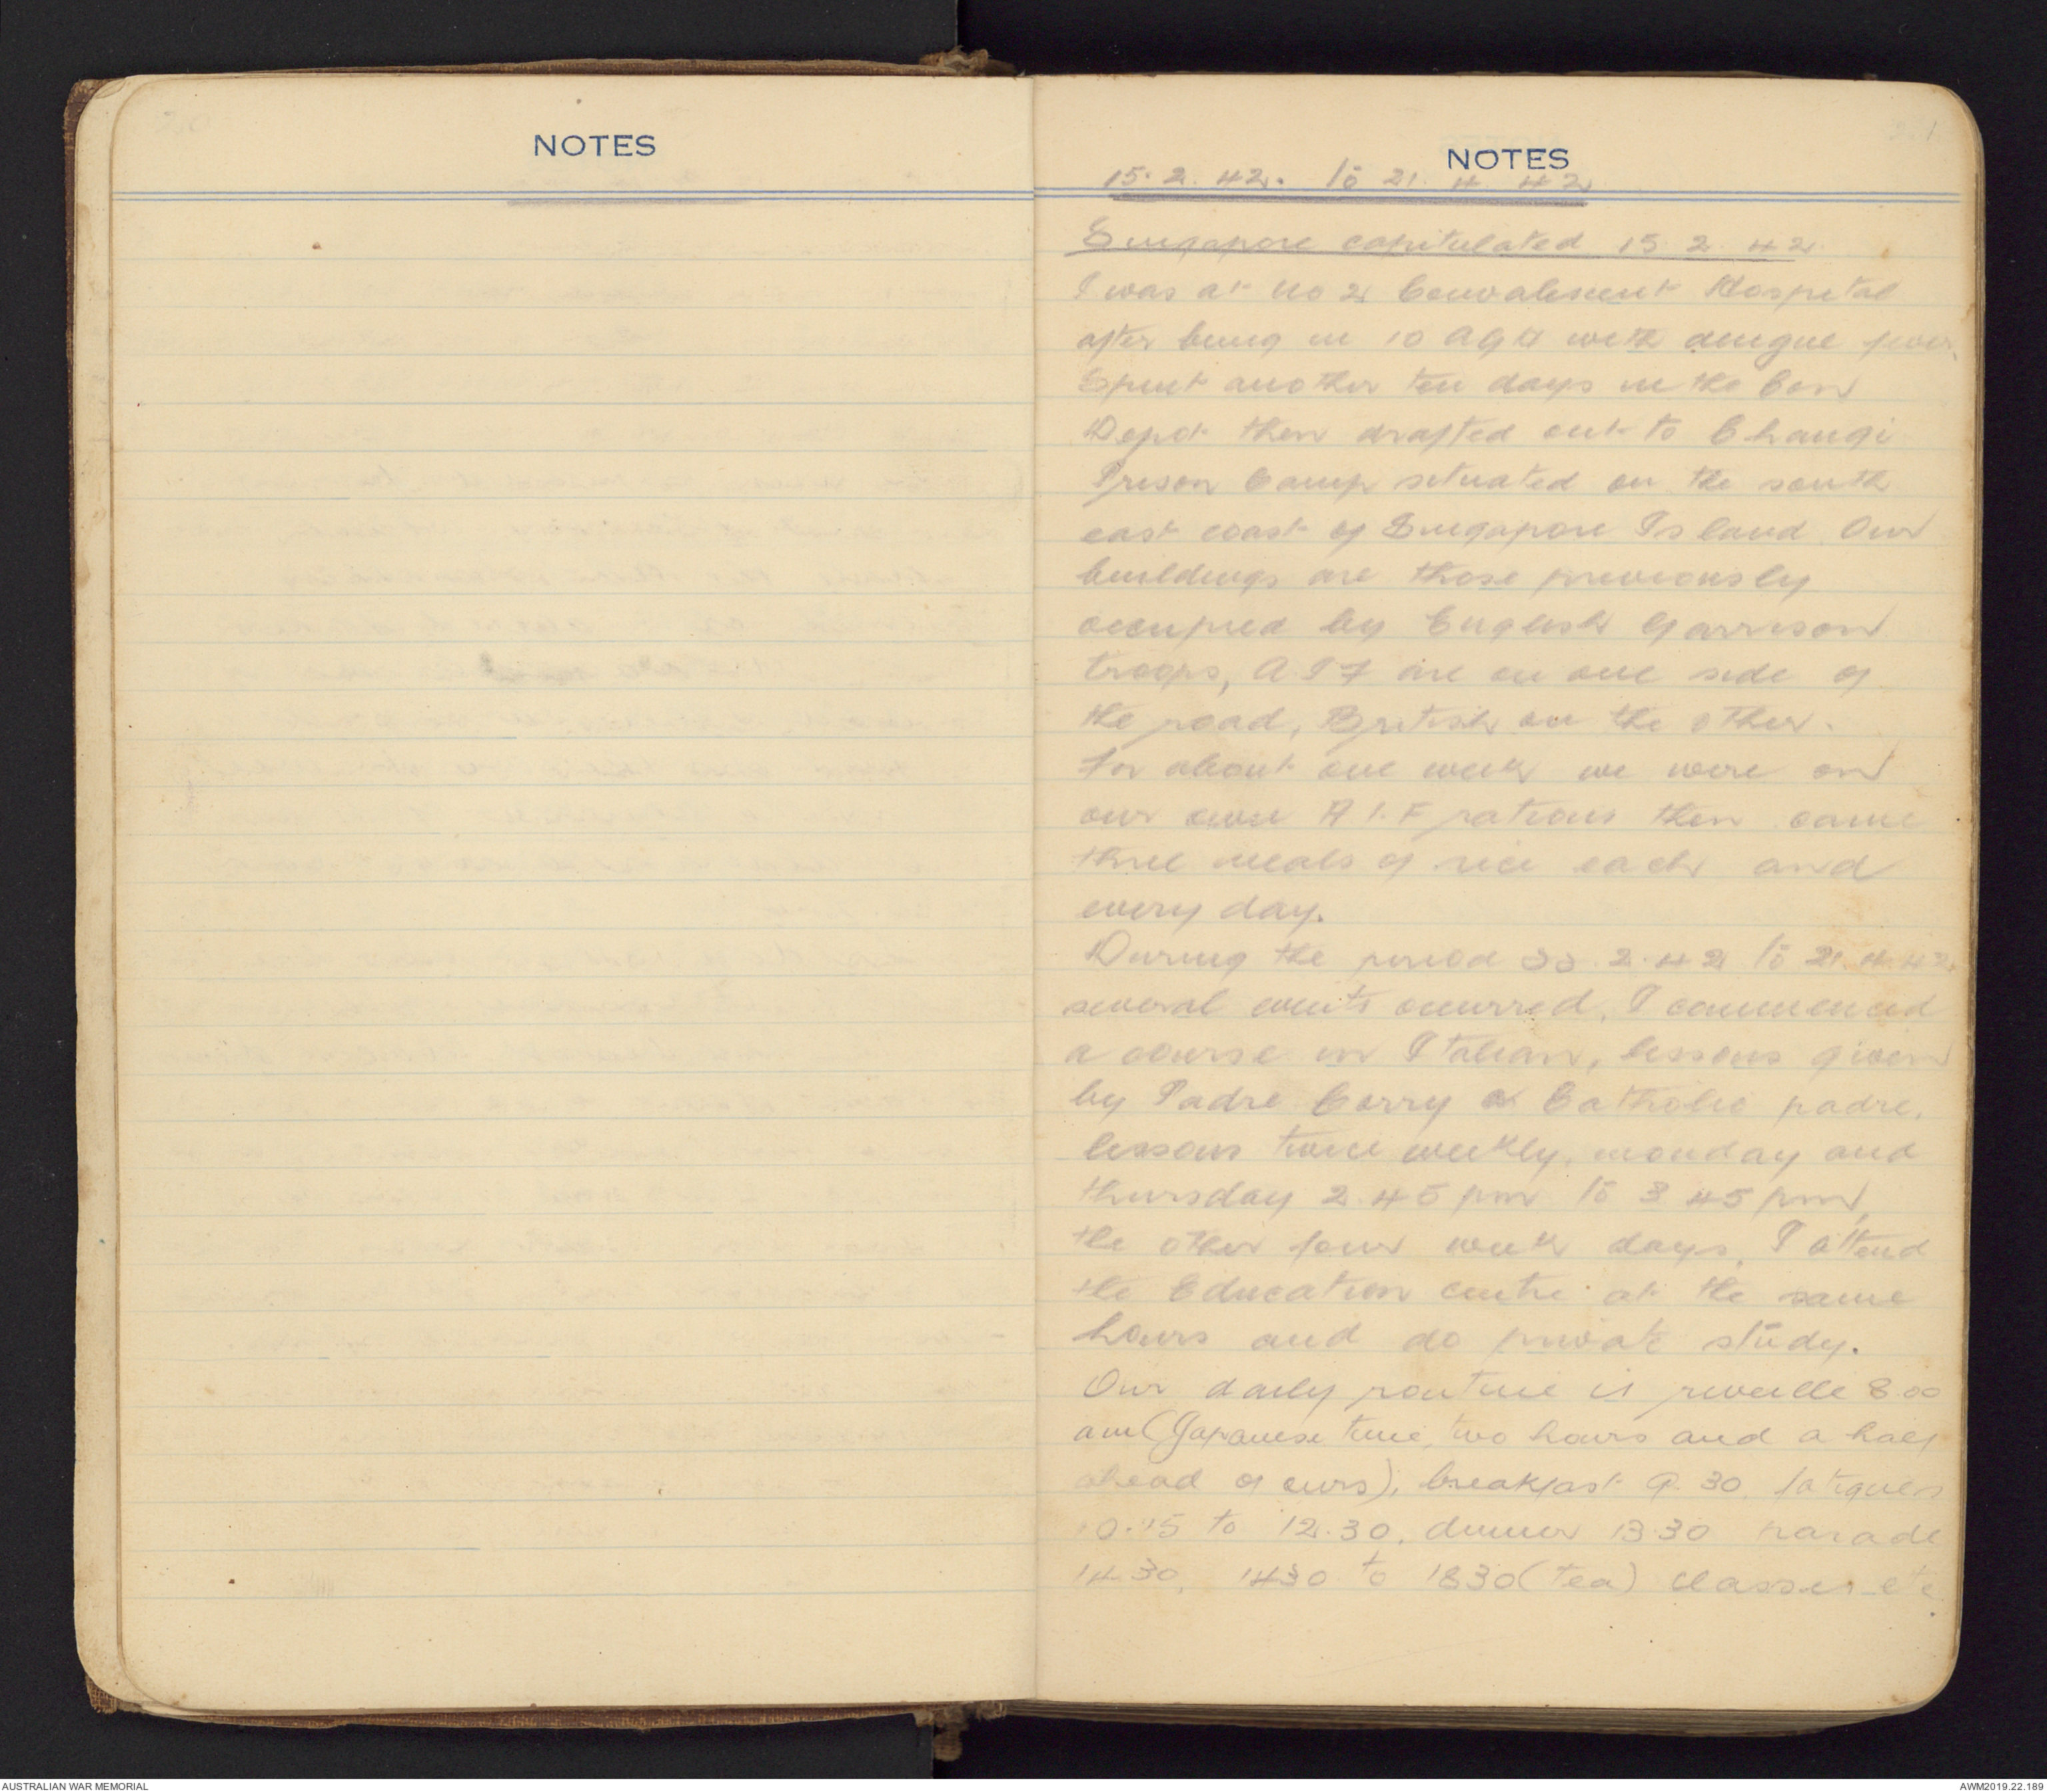 NOTES
NOTES
15.2.42. to 21.4.42
Singapore capitulated 15.2.42.
I was at No 2 Convalescent Hospital
after being in 10 AGH with dengue fever.
Spent another ten days in the Con
Depot then drafted out to Changi
Prison Camp situated on the south
east coast of Singapore Island. Our
buildings are those previously
occupied by English Garrison
troops, A.I.F are on one side of
the road, British on the other.
For about one week we were on
our own A.I.F rations then came
three meals of rice each and
every day.
During the period .2.42 to 21.4.42
several events occurred, I commenced
a course in Italian, lessons given
by Padre Corry a Catholic padre,
lessons twice weekly, monday and
thursday 2.45 pm to 3 45 pm,
the other four week days, I attend
the Education centre at the same
hours and do private study.
Our daily routine is reveille 8.00
am (Japanese time, two hours and a half
ahead of ours), breakfast 9.30, fatigues
to 12.30, dinner 13.30 parade
14.30, 1430 to 1830 (tea) classes etc
AUSTRALIAN WAR MEMORIAL
AWM2019.22.189